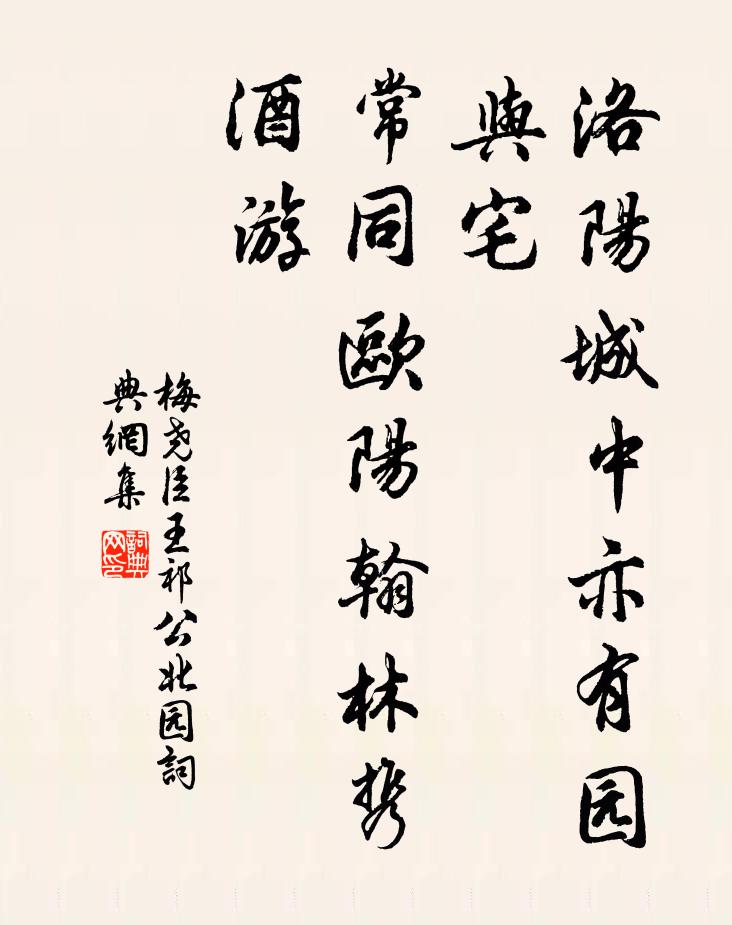 洛陽城中亦有园
與宅
常同歐陽翰林携
酒游
梅尧臣王祁公北园詞
典網集
詞典网印